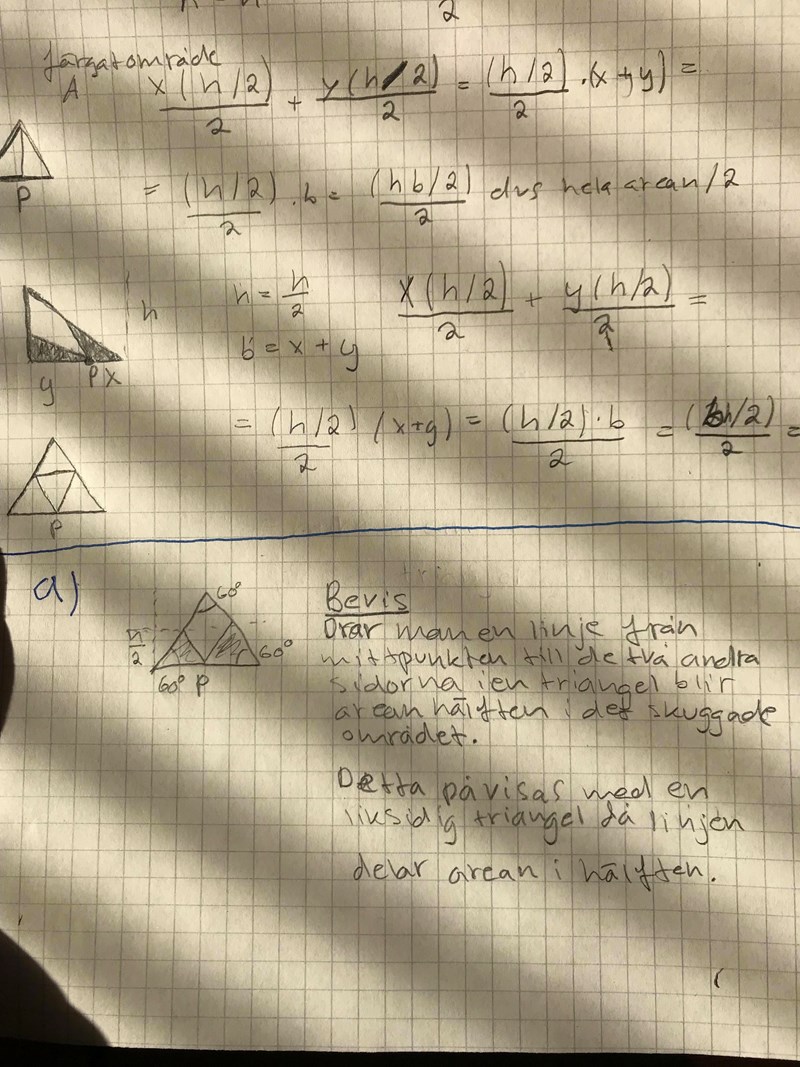 2
färgat område
A x(h/2)/2 + y(h/2)/2 = (h/2)/2 · (x+y) =
P
= (h/2)/2 · b = (hb/2)/2 dvs hela arean/2
h h = h/2 x(h/2)/2 + y(h/2)/2 =
b = x + y
y P x
= (h/2)/2 (x+y) = (h/2)·b/2 = (bh/2)/2 =
P
a)
60°
h/2 60°
60° P
Bevis
Drar man en linje från
mittpunkten till de två andra
sidorna i en triangel blir
arean hälften i det skuggade
området.
Detta påvisas med en
liksidig triangel då linjen
delar arean i hälften.